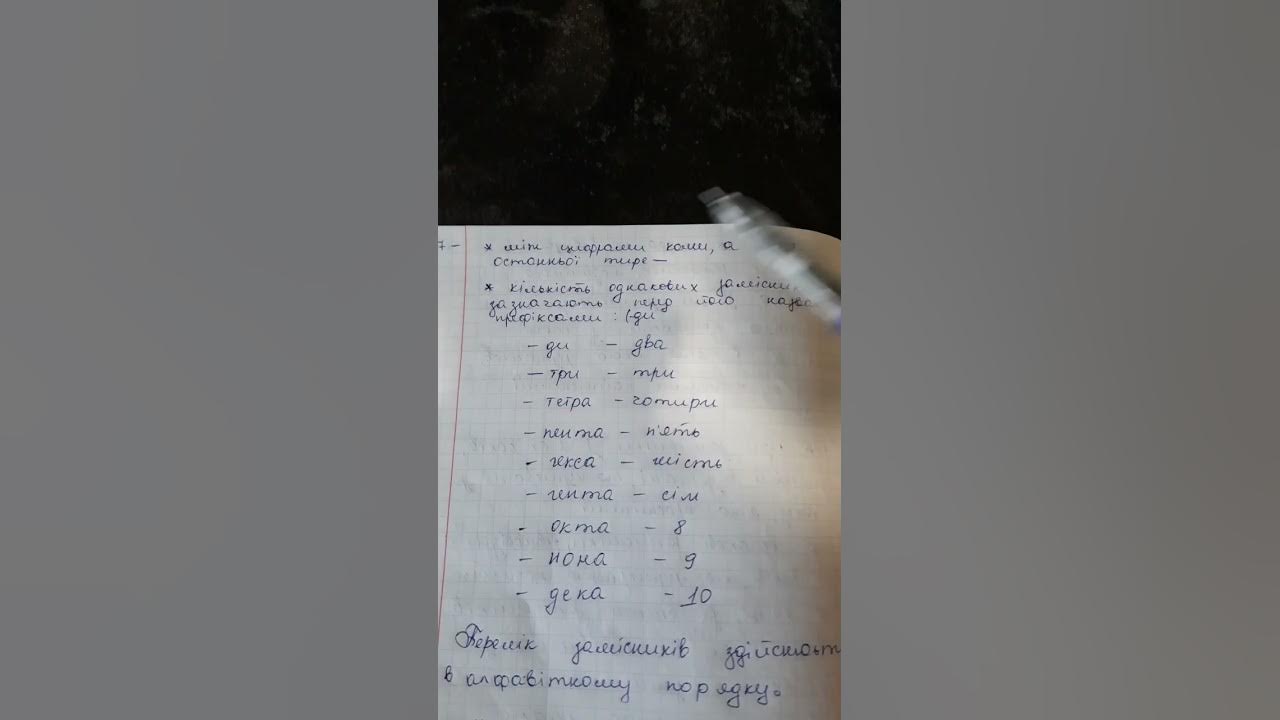 7 – * між цифрами коми, а
останньої тире —
* кількість однакових замісник
зазначають перед його назв
префіксами : (-ди
– ди – два
– три – три
– тетра – чотири
– пента – п'ять
- гекса – шість
– гепта – сім
- окта – 8
– нона – 9
- дека - 10
Перелік замісників здійснюєт
в алфавіткому порядку.